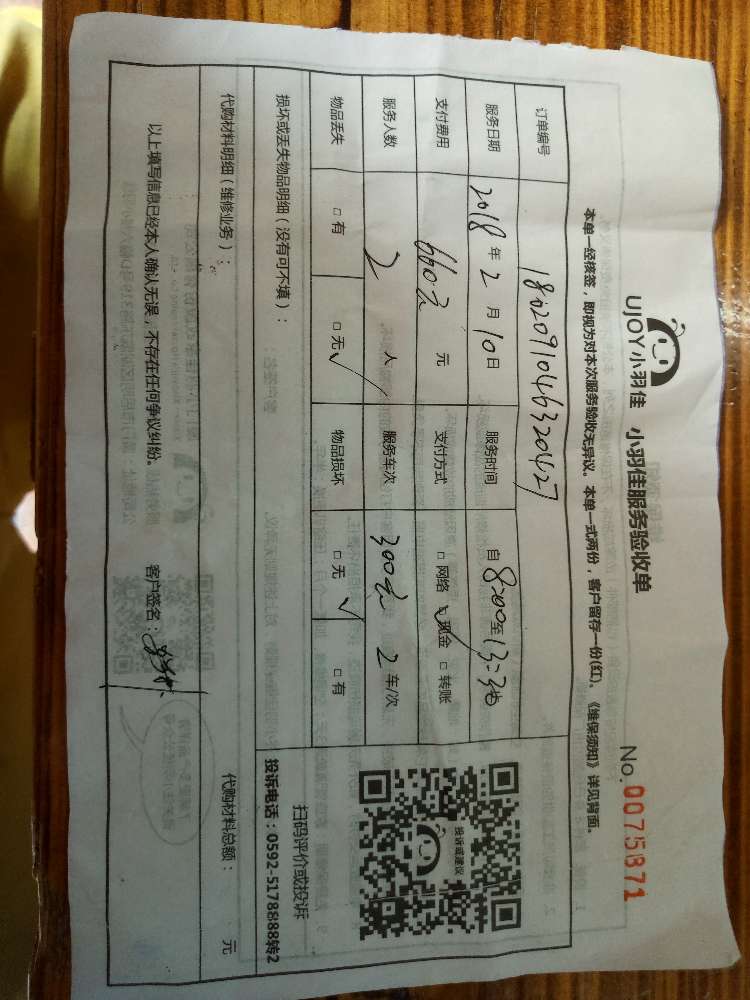 UJOY小羽佳 小羽佳服务验收单
No. 0075871
本单一经核签，即视为对本次服务验收无异议。本单一式两份，客户留存一份(红)。《维保须知》详见背面。
订单编号 1802091046320427
服务日期 2018年2月10日 服务时间 自8:00至13:30
支付费用 660元 元 支付方式 □网络 □现金 ✓ □转账
服务人数 2 人 服务车次 300元 2 车/次
物品丢失 □有 □无 ✓ 物品损坏 □无 ✓ □有
损坏或丢失物品明细（没有可不填）：
投诉或建议
扫码评价或投诉
投诉电话：0592-5178888转2
代购材料明细（维修业务）： 代购材料总额： 元
以上填写信息已经本人确认无误，不存在任何争议纠纷。 客户签名：